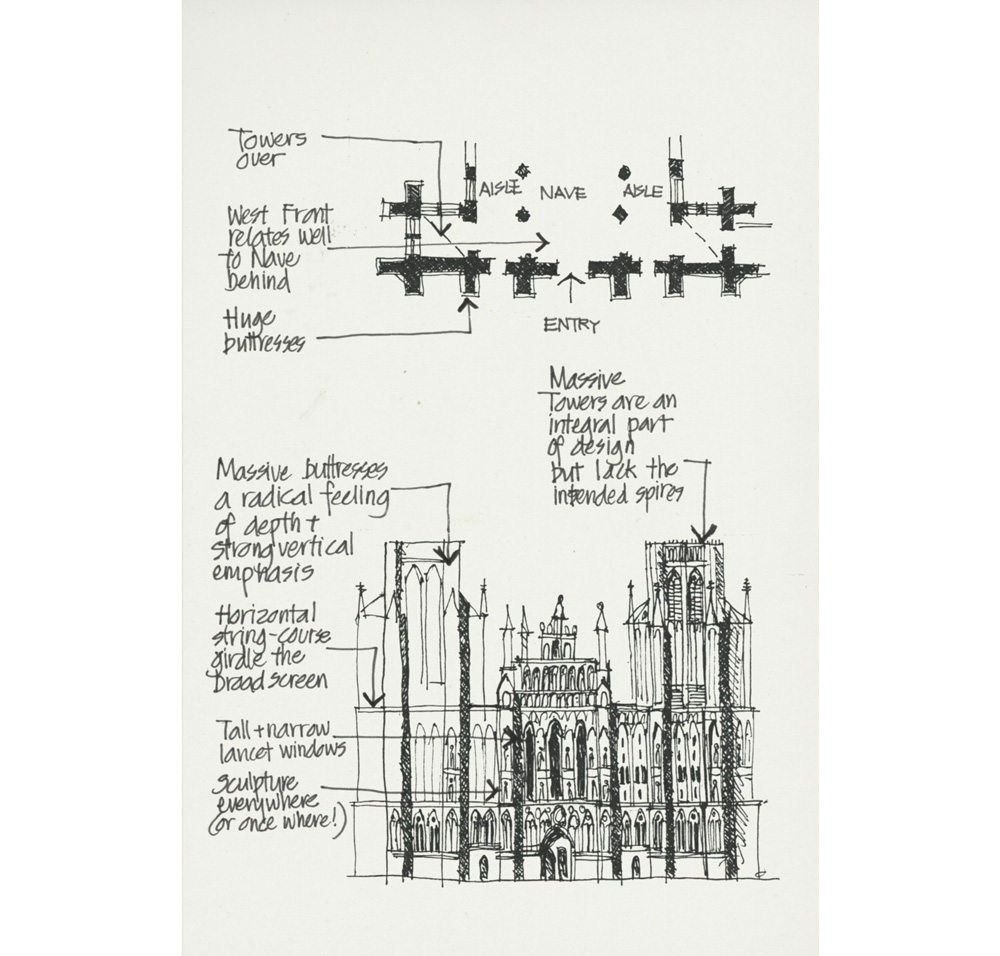 Towers
over
AISLE NAVE AISLE
West Front
relates well
to Nave
behind
Huge
buttresses
ENTRY
Massive
Towers are an
integral part
of design
but lack the
intended spires
Massive buttresses
a radical feeling
of depth +
strong vertical
emphasis
Horizontal
string-course
girdle the
broad screen
Tall + narrow
lancet windows
Sculpture
everywhere
(or once where!)